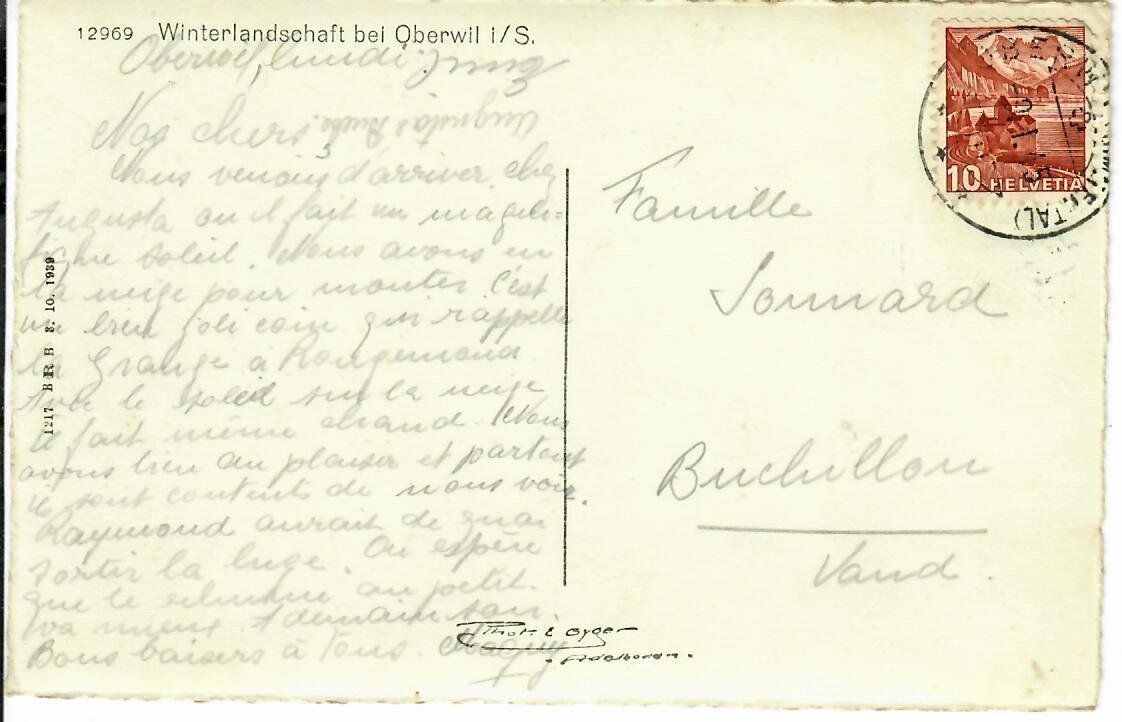 12969 Winterlandschaft bei Oberwil i/S.
Oberwil, lundi
Nos chers
Nous venons d'arriver chez
Augusta où il fait un magni=
fique soleil. Nous avons eu
la neige pour monter. C'est
un bien joli coin qui rappelle
la Grange à Rougemont
Avec le soleil sur la neige
il fait même chaud. Nous
avons bien du plaisir et partout
ils sont contents de nous voir.
Raymond aurait de quoi
sortir la luge. On espère
que le au petit
va mieux A demain soir.
Bons baisers à tous. Maguy
1217 BRB 3. 10. 1939
Famille
Jonnard
Buchillon
Vaud.
10 HELVETIA
Phot. E. Gyger
Adelboden